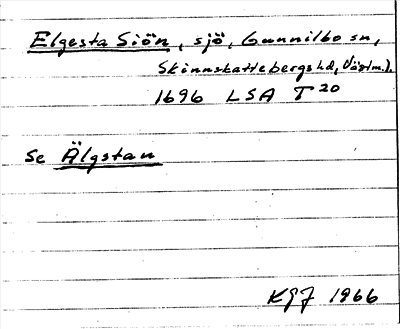 Elgesta Siön, sjö, Gunnilbo sn,
Skinnskattebergs hd, Västm.).
1696 LSA T 20
Se Älgstan
KGJ 1966